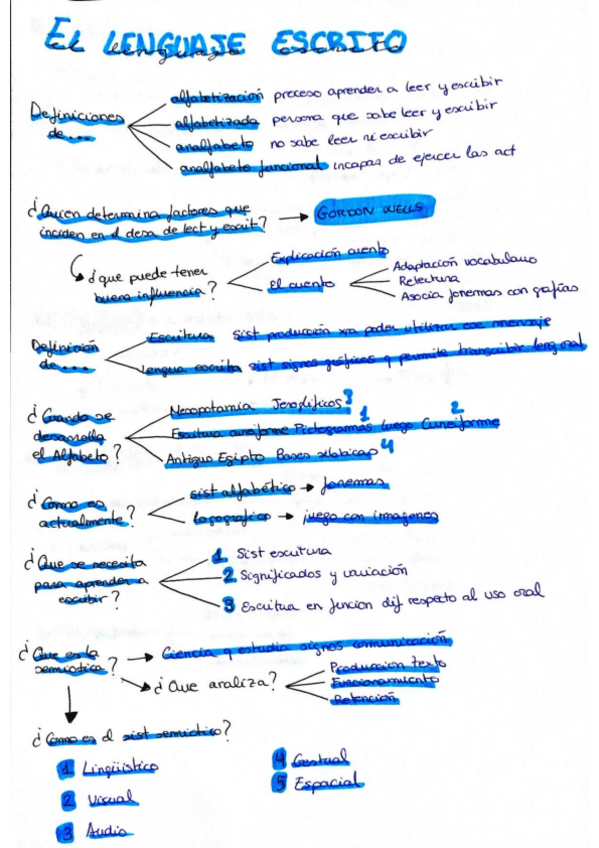 EL LENGUAJE ESCRITO
Definiciones de...
alfabetización proceso aprender a leer y escribir
alfabetizada persona que sabe leer y escribir
analfabeto no sabe leer ni escribir
analfabeto funcional incapas de ejercer las act
¿Quien determina factores que inciden en el desa de lect y escrit? → GORDON WELLS
¿que puede tener buena influencia?
Explicación cuento
El cuento
Adaptación vocabulario
Relectura
Asocia fonemas con grafías
Definición de...
Escritura sist producción xra poder utilizar ese mensaje
Lengua escrita sist signos gráficos q permite transcribir leng oral
¿Cuando se desarrolla el Alfabeto?
Mesopotamia Jeroglíficos 3
Escritura cuneiforme Pictogramas 1 luego Cuneiforme 2
Antiguo Egipto Bases silabicas 4
¿Como es actualmente?
sist alfabético → fonemas
Logografico → juega con imagenes
¿Que se necesita para aprender a escribir?
1 Sist escritura
2 Significados y variación
3 Escritura en funcion dif respecto al uso oral
¿Que es la semiotica? → Ciencia q estudia signos comunicación
→ ¿Que analiza?
Produccion texto
Funcionamiento
Retención
¿Como es el sist semiotico?
1 Lingüistico
2 Visual
3 Audio
4 Gestual
5 Espacial